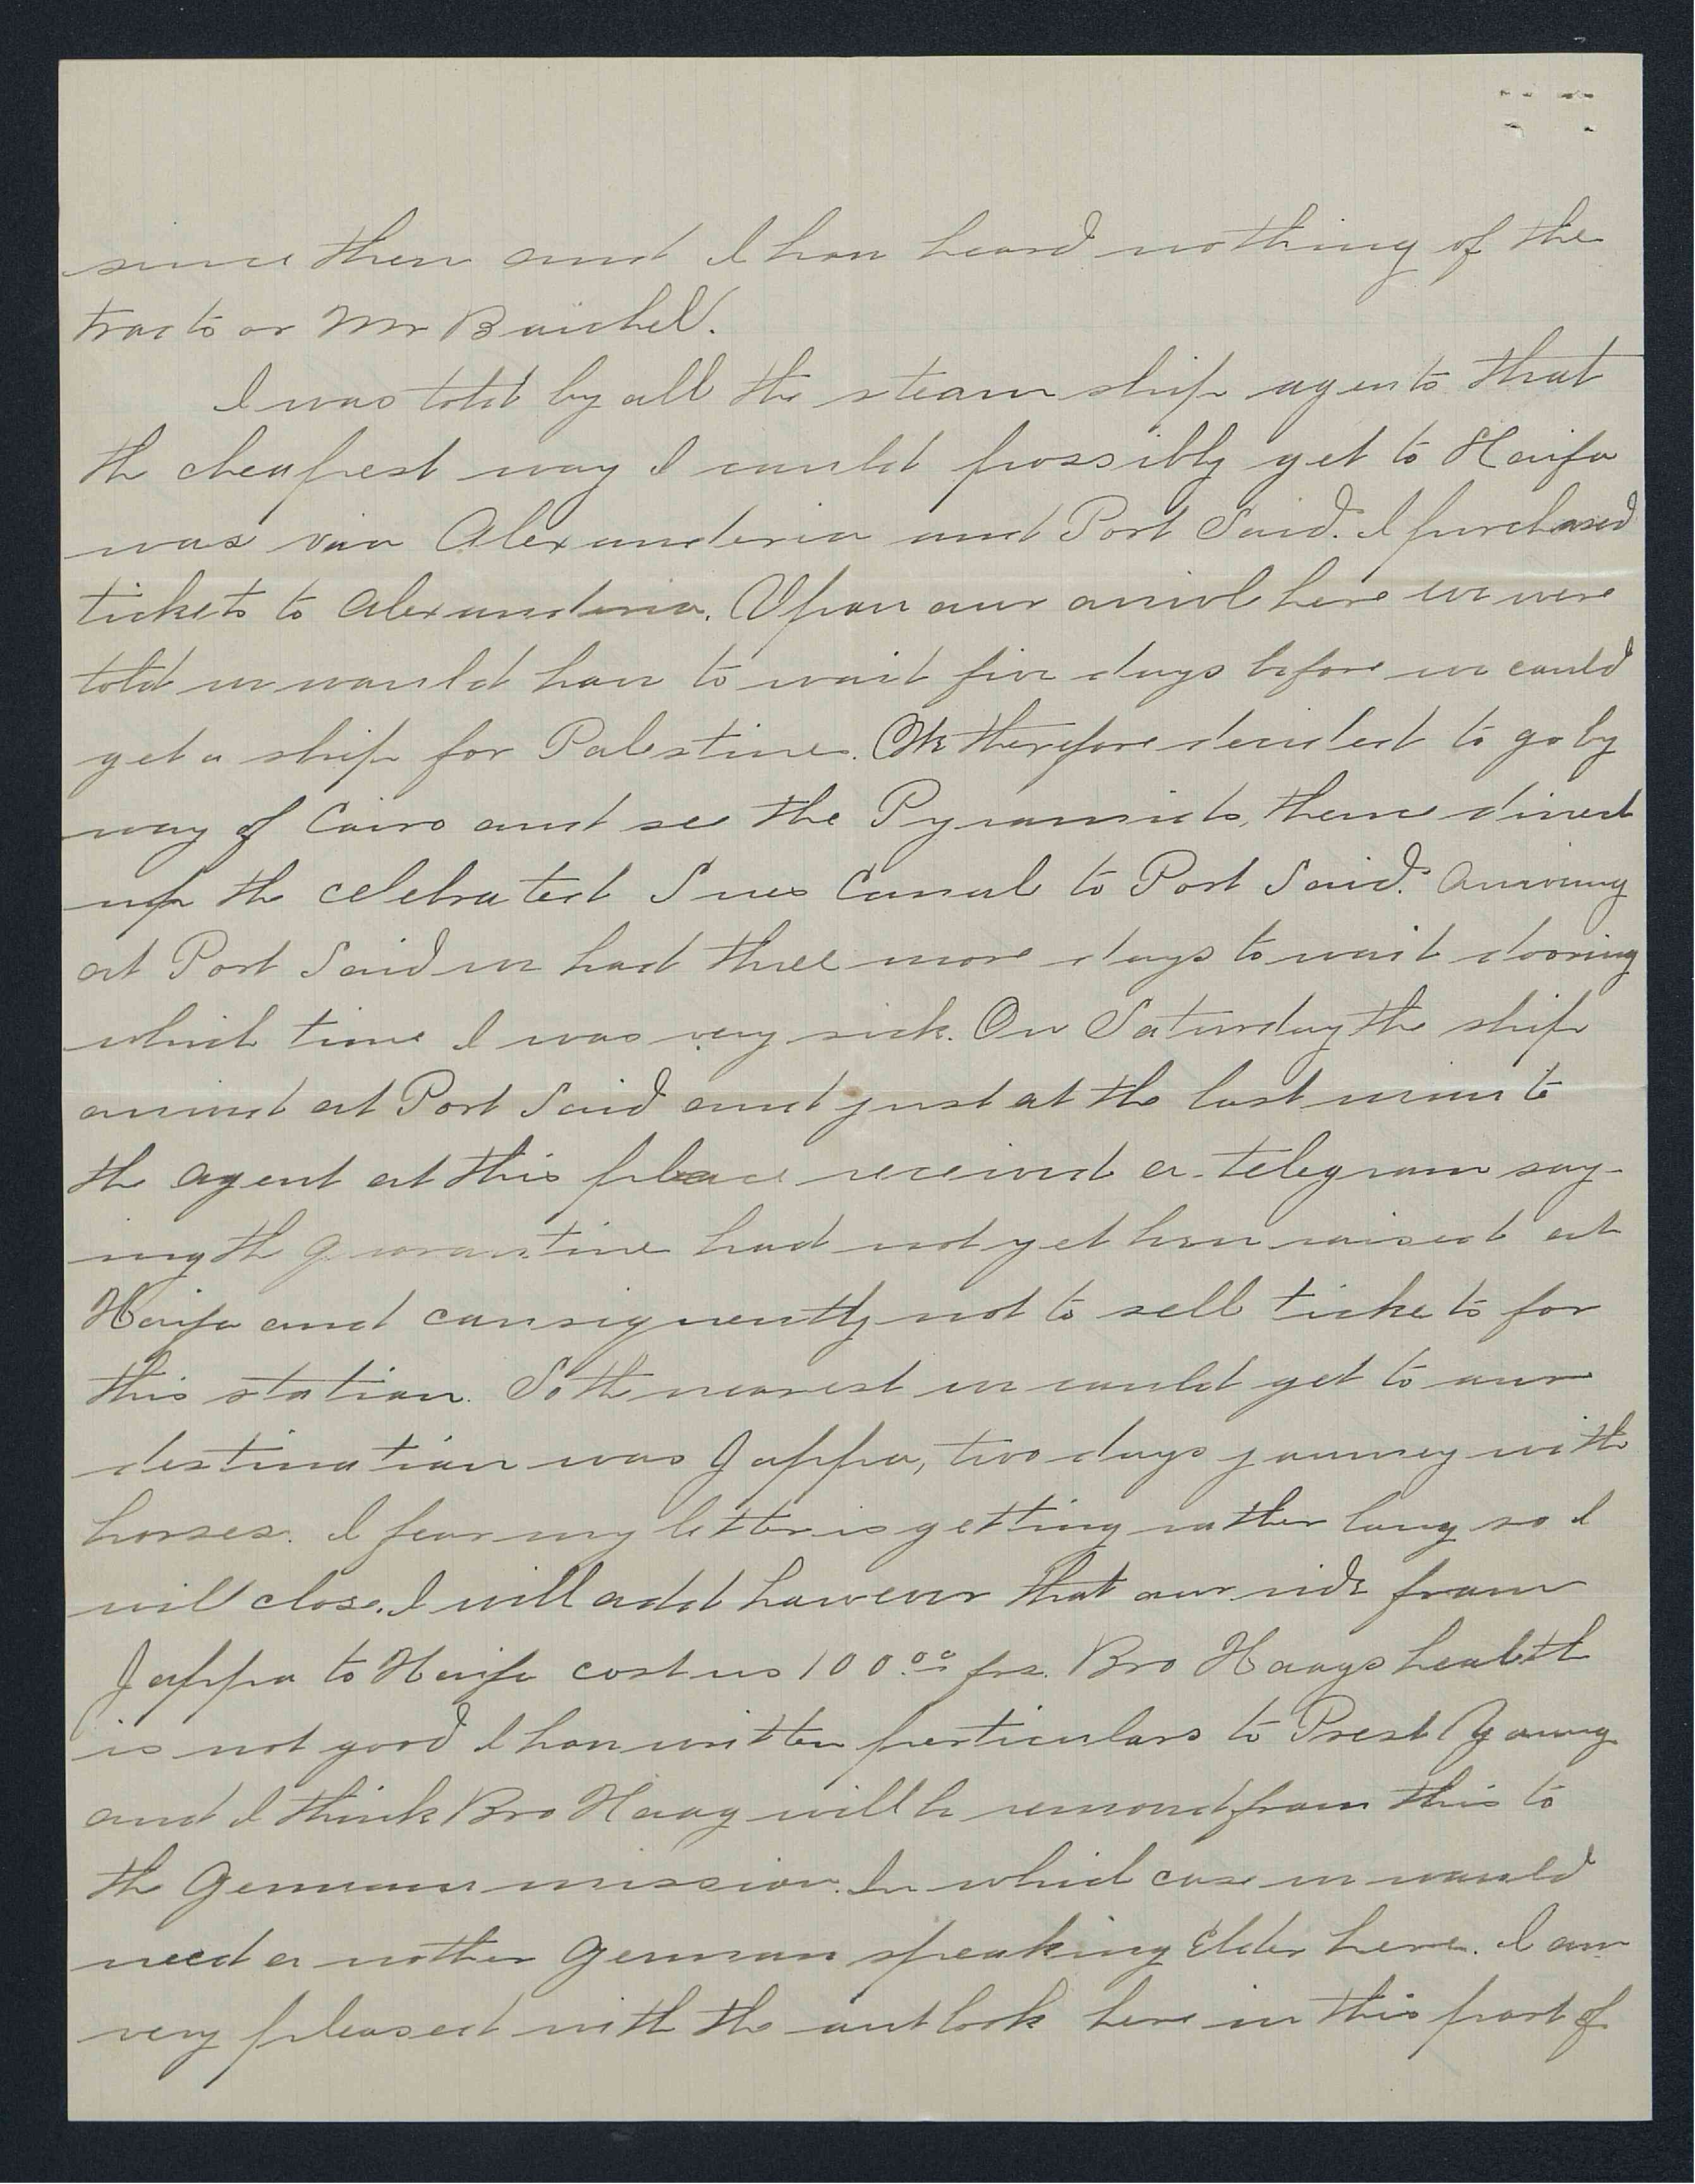 since then and I have heard nothing of the
tracts or Mr Buichel.
I was told by all the steam ship agents that
the cheapest way I could possibly get to Haifa
was via Alexanderia and Port Said. I purchased
tickets to Alexanderia. Upon our arivel here we were
told we would have to wait five days before we could
get a ship for Palestine. We therefore decided to go by
way of Cairo and see the Pyramids, thence direct
up the celebrated Sues Canal to Port Said. Arriving
at Port Said we had three more days to wait dooring
which time I was very sick. On Saturday the ship
arrived at Port Said and just at the last minute
the agent at this place received a telegram say-
ing the quarantine had not yet been raised at
Haifa and consiquently not to sell tickets for
this station. So the nearest we could get to our
destination was Jaffa, two days journey with
horses. I fear my letter is getting rather long so I
will close. I will add however that our ride from
Jaffa to Haifa cost us 100.00 frs. Bro Haags health
is not good I have written perticulars to Prest Young
and I think Bro Haag will be removed from this to
the German mission. In which case we would
need a nother German speaking Elder here. I am
very pleased with the outlook here in this part of